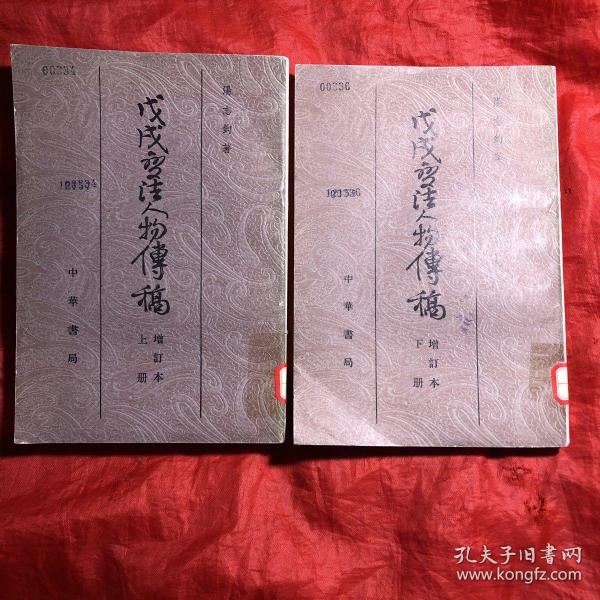 60334
湯志鈞著
戊戌变法人物傳稿
增訂本
上册
中華書局
60336
湯志鈞著
戊戌变法人物傳稿
增訂本
下册
中華書局
孔夫子旧书网
www.kongfz.com